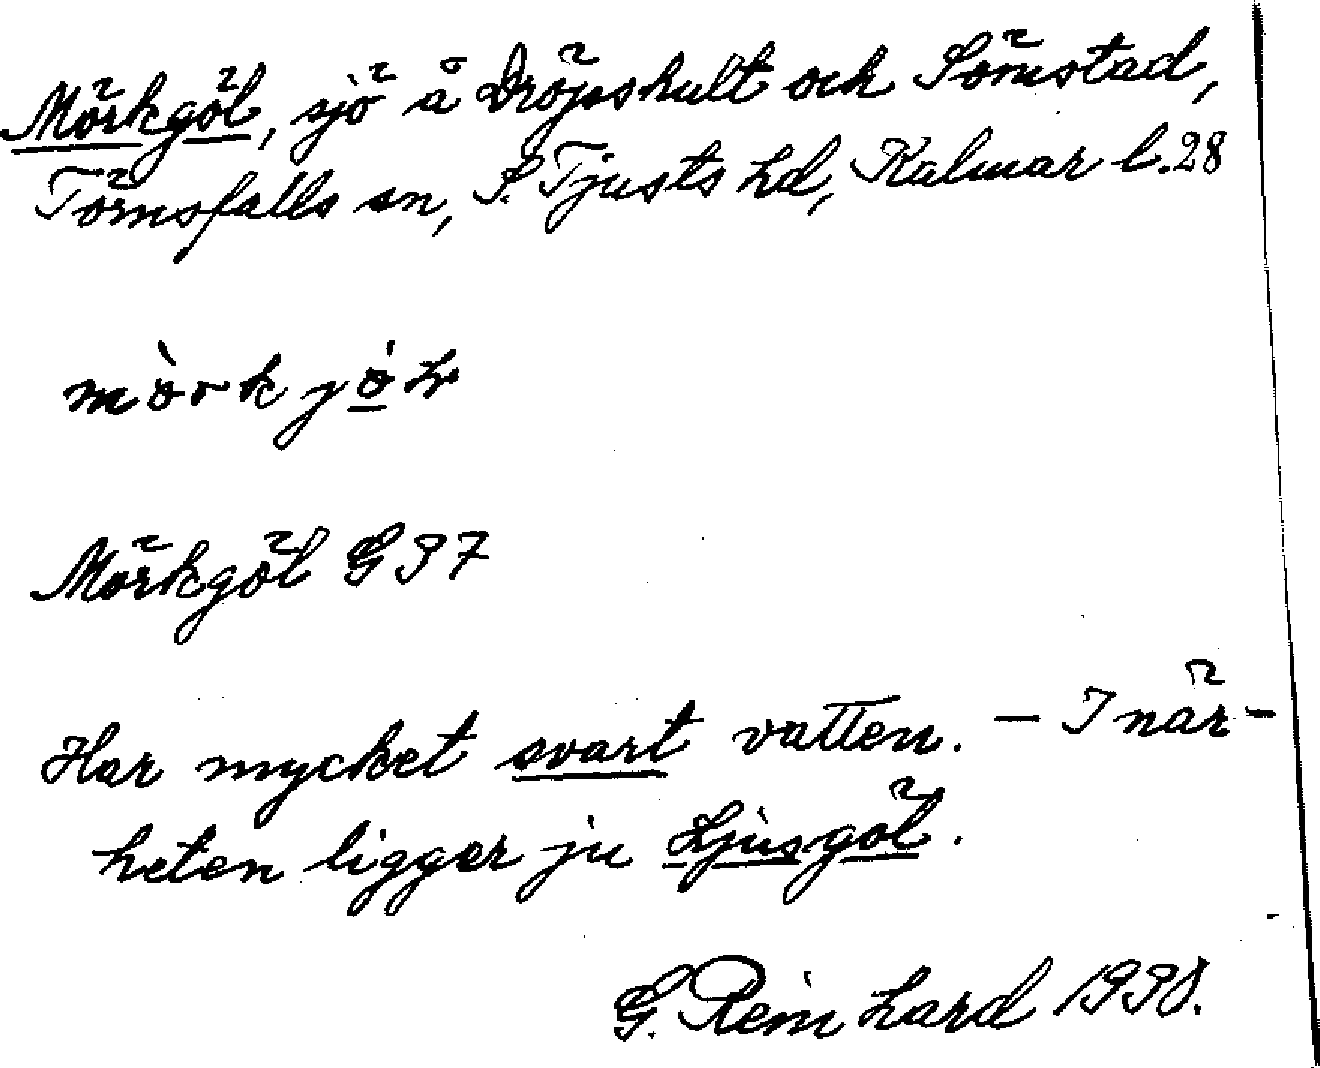 Mörkgöl, sjö å Dröpshult och Sömstad,
Törnsfalls sn, S. Tjusts hd, Kalmar l. 28
mörkjöl
Mörkgöl G 97
Har mycket svart vatten. – I när-
heten ligger ju Ljusgöl.
G. Reinhard 1990.